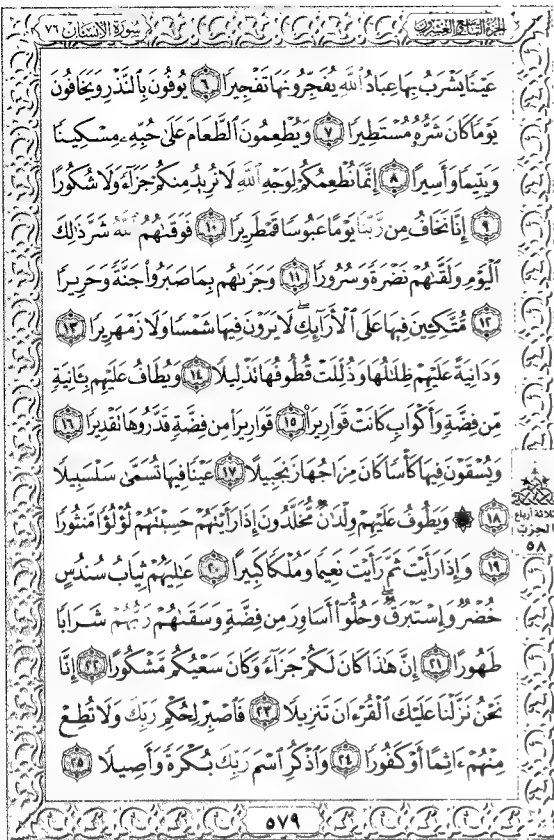 الجزء التاسع والعشرون
سورة الإنسان ٧٦
عَيْنًا يَشْرَبُ بِهَا عِبَادُ ٱللَّهِ يُفَجِّرُونَهَا تَفْجِيرًا ٦ يُوفُونَ بِٱلنَّذْرِ وَيَخَافُونَ
يَوْمًا كَانَ شَرُّهُۥ مُسْتَطِيرًا ٧ وَيُطْعِمُونَ ٱلطَّعَامَ عَلَىٰ حُبِّهِۦ مِسْكِينًا
وَيَتِيمًا وَأَسِيرًا ٨ إِنَّمَا نُطْعِمُكُمْ لِوَجْهِ ٱللَّهِ لَا نُرِيدُ مِنكُمْ جَزَآءً وَلَا شُكُورًا
٩ إِنَّا نَخَافُ مِن رَّبِّنَا يَوْمًا عَبُوسًا قَمْطَرِيرًا ١٠ فَوَقَىٰهُمُ ٱللَّهُ شَرَّ ذَٰلِكَ
ٱلْيَوْمِ وَلَقَّىٰهُمْ نَضْرَةً وَسُرُورًا ١١ وَجَزَىٰهُم بِمَا صَبَرُوا۟ جَنَّةً وَحَرِيرًا
١٢ مُّتَّكِـِٔينَ فِيهَا عَلَى ٱلْأَرَآئِكِ ۖ لَا يَرَوْنَ فِيهَا شَمْسًا وَلَا زَمْهَرِيرًا ١٣
وَدَانِيَةً عَلَيْهِمْ ظِلَٰلُهَا وَذُلِّلَتْ قُطُوفُهَا تَذْلِيلًا ١٤ وَيُطَافُ عَلَيْهِم بِـَٔانِيَةٍ
مِّن فِضَّةٍ وَأَكْوَابٍ كَانَتْ قَوَارِيرَا۠ ١٥ قَوَارِيرَا۟ مِن فِضَّةٍ قَدَّرُوهَا تَقْدِيرًا ١٦
وَيُسْقَوْنَ فِيهَا كَأْسًا كَانَ مِزَاجُهَا زَنجَبِيلًا ١٧ عَيْنًا فِيهَا تُسَمَّىٰ سَلْسَبِيلًا
١٨ ۞ وَيَطُوفُ عَلَيْهِمْ وِلْدَٰنٌ مُّخَلَّدُونَ إِذَا رَأَيْتَهُمْ حَسِبْتَهُمْ لُؤْلُؤًا مَّنثُورًا
١٩ وَإِذَا رَأَيْتَ ثَمَّ رَأَيْتَ نَعِيمًا وَمُلْكًا كَبِيرًا ٢٠ عَٰلِيَهُمْ ثِيَابُ سُندُسٍ
خُضْرٌ وَإِسْتَبْرَقٌ ۖ وَحُلُّوٓا۟ أَسَاوِرَ مِن فِضَّةٍ وَسَقَىٰهُمْ رَبُّهُمْ شَرَابًا
طَهُورًا ٢١ إِنَّ هَٰذَا كَانَ لَكُمْ جَزَآءً وَكَانَ سَعْيُكُم مَّشْكُورًا ٢٢ إِنَّا
نَحْنُ نَزَّلْنَا عَلَيْكَ ٱلْقُرْءَانَ تَنزِيلًا ٢٣ فَٱصْبِرْ لِحُكْمِ رَبِّكَ وَلَا تُطِعْ
مِنْهُمْ ءَاثِمًا أَوْ كَفُورًا ٢٤ وَٱذْكُرِ ٱسْمَ رَبِّكَ بُكْرَةً وَأَصِيلًا ٢٥
ثلاثة أرباع
الحزب
٥٨
٥٧٩